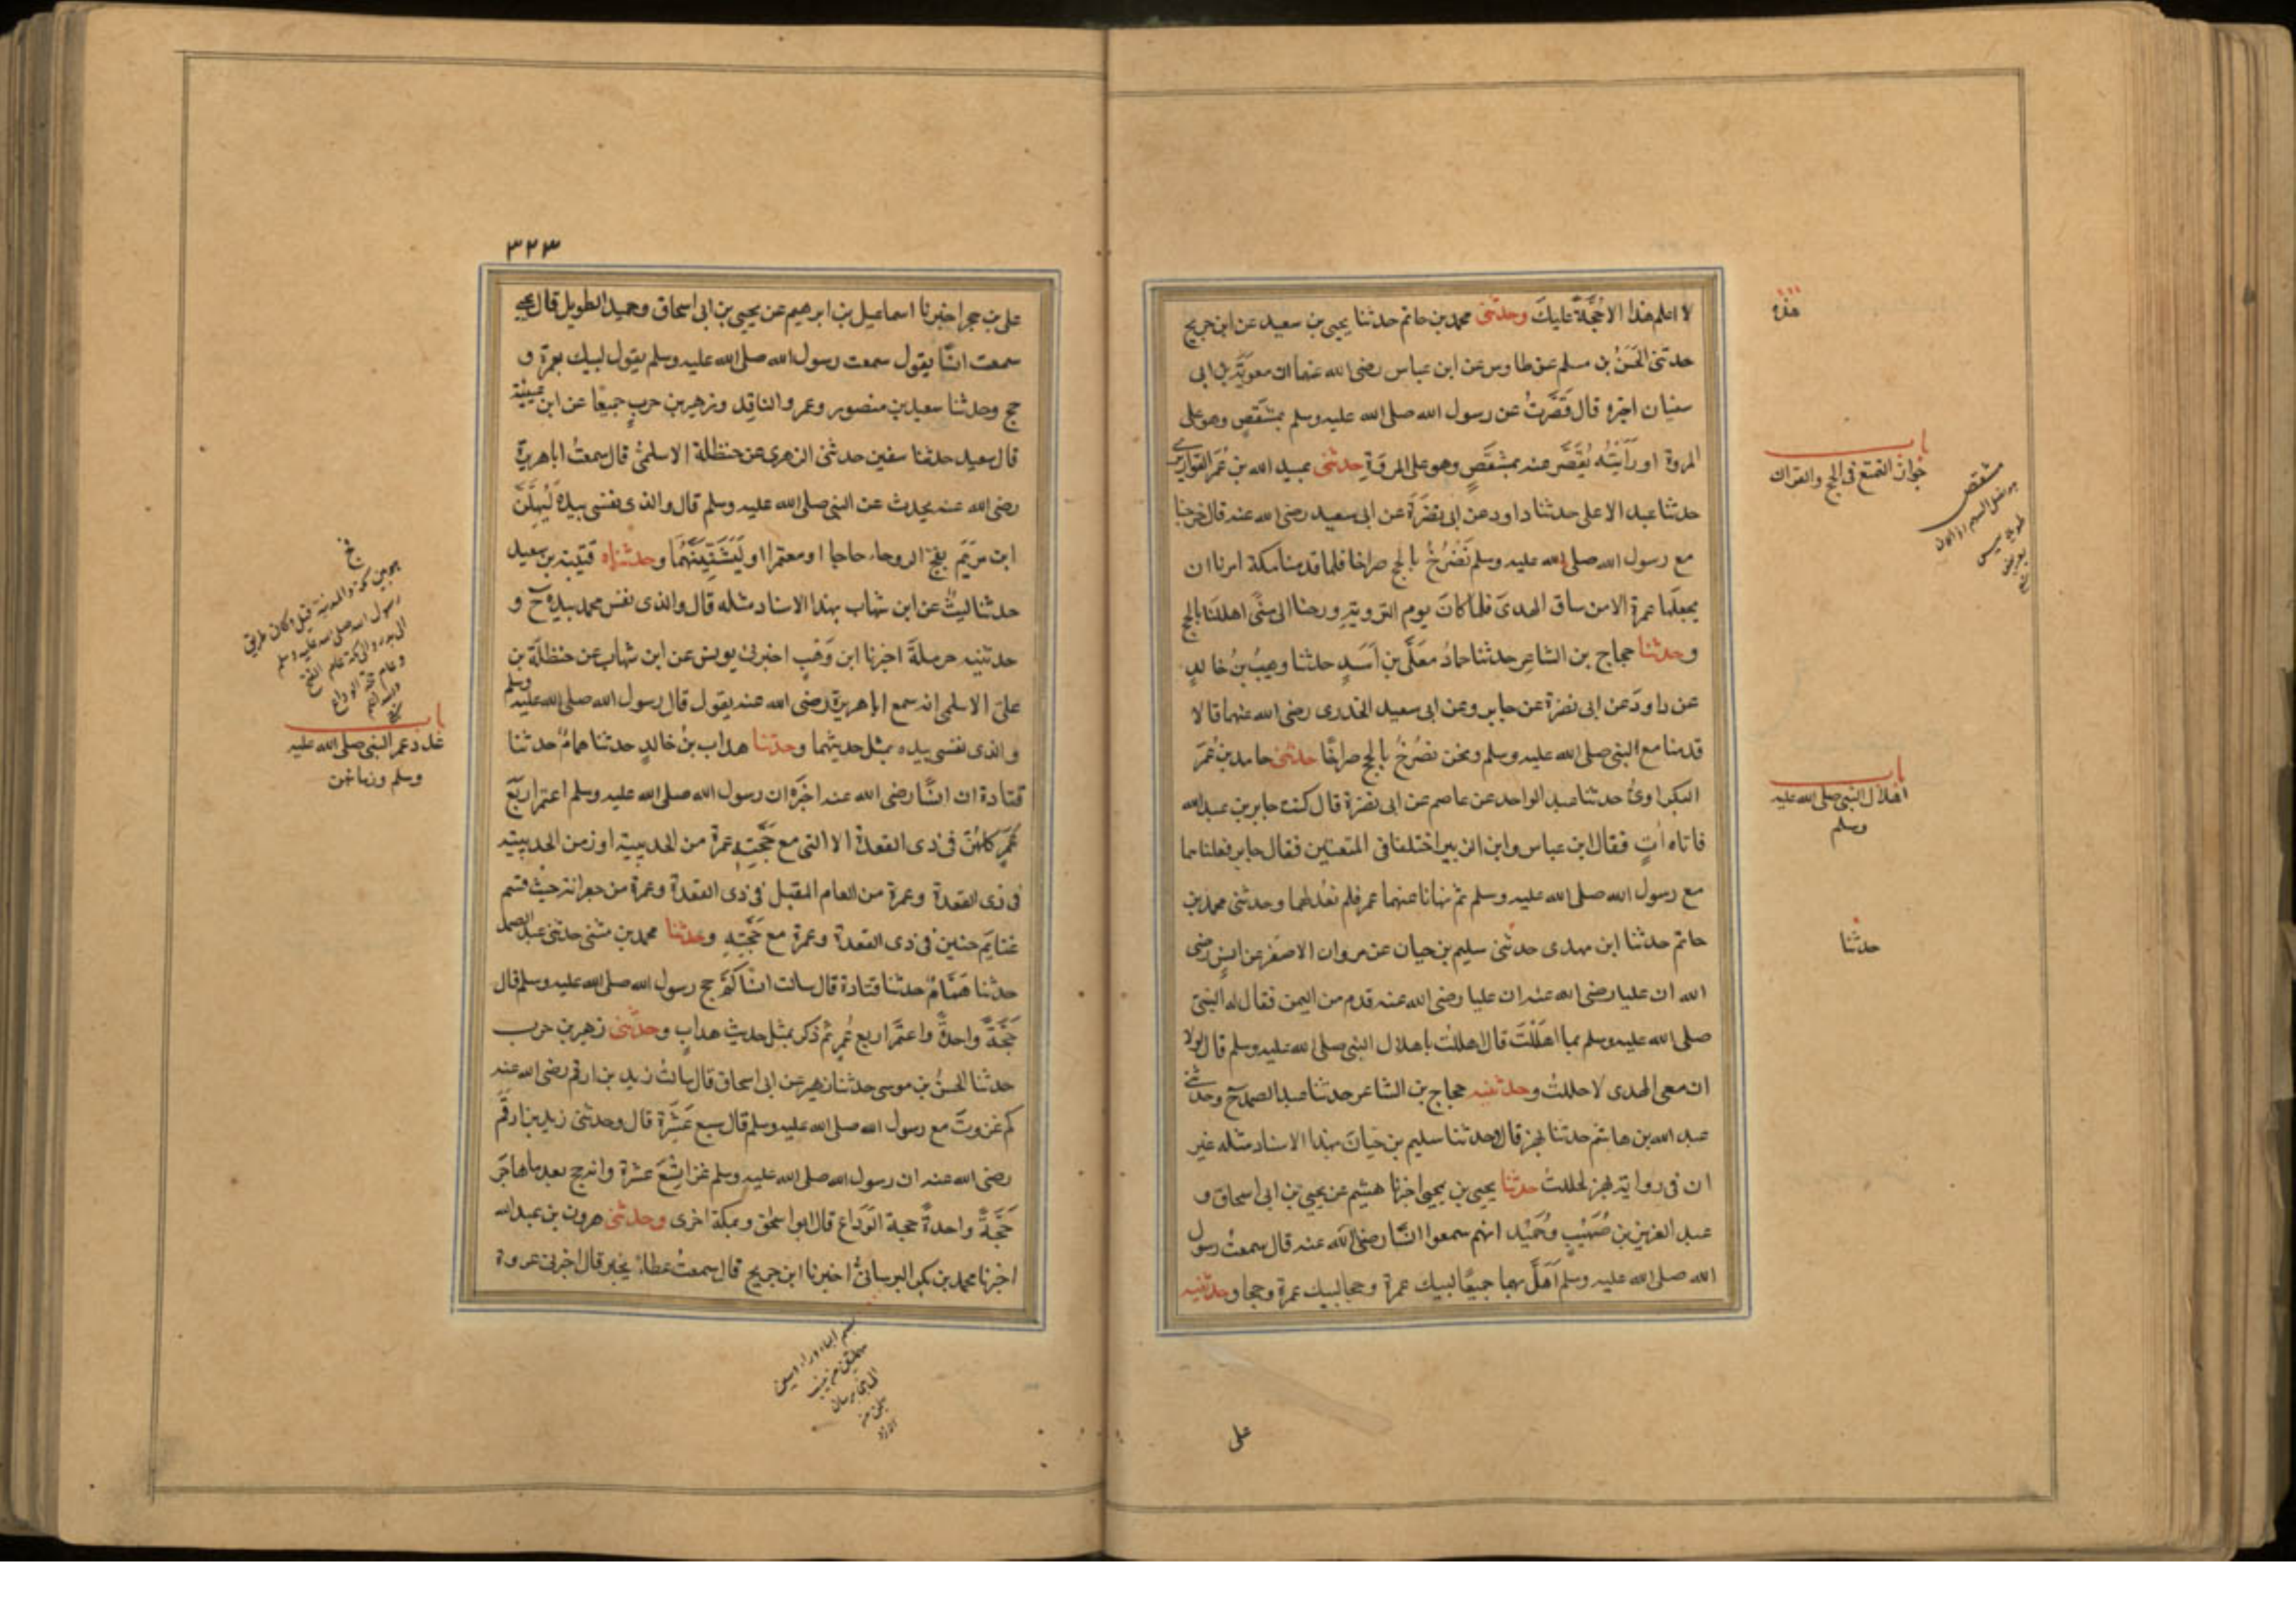 لا اعلم هذا الا حُجَّةً عليك وحدثنى محمد بن حاتم حدثنا يحيى بن سعيد عن ابن جريج
حدثنى الحَسَنُ بن مسلم عن طاوس عن ابن عباس رضى الله عنهما ان معوية بن ابى
سفيان اخبره قال قَصَّرتُ عن رسول الله صلى الله عليه وسلم بمشقصٍ وهو على
المروة او رَاَيتُه يُقَصَّر عنه بمشقصٍ وهو على المروة حدثنى عبيد الله بن عُمَر القواريرى
حدثنا عبد الاعلى حدثنا داود عن ابى نضرَةَ عن ابى سعيد رضى الله عنه قال خرجنا
مع رسول الله صلى الله عليه وسلم نَصْرُخُ بالحج صراخا فلما قدمنا مكة امرنا ان
نجعلها عمرة الا من ساق الهدى فلما كان يوم التروية ورحنا الى منًى اهللنا بالحج
وحدثنا حجاج بن الشاعر حدثنا معَلَّى بن اَسَدٍ حدثنا وهيبُ بنُ خالدٍ
عن داودَ عن ابى نضرة عن جابر وعن ابى سعيد الخدرى رضى الله عنهما قالا
قدمنا مع النبى صلى الله عليه وسلم ونحن نصْرُخُ بالحج صراخًا حدثنى حامد بن عُمَرَ
البكراوىُّ حدثنا عبد الواحد عن عاصم عن ابى نضرة قال كنت عند جابر بن عبد الله
فاتاه اٰتٍ فقال ابن عباس وابن الزبير اختلفا فى المتعتين فقال جابر فعلناهما
مع رسول الله صلى الله عليه وسلم ثم نهانا عنهما عمر فلم نعُد لهما وحدثنى محمد بن
حاتم حدثنا ابن مهدى حدثنى سليم بن حيان عن مروان الاصفر عن انسٍ رضى
الله ان عليا رضى الله عنه ان عليا رضى الله عنه قدم من اليمن فقال له النبى
صلى الله عليه وسلم بما اهلَلْتَ قال اهللت باهلال النبى صلى الله عليه وسلم قال لولا
ان معى الهدى لاحللتُ وحدثنيه حجاج بن الشاعر حدثنا عبد الصمد ح وحدثنى
عبد الله بن هاشم حدثنا بهز قالا حدثنا سليم بن حيان بهذا الاسناد مثله غير
ان فى رواية بهز لحللتُ حدثنا يحيى بن يحيى اخبرنا هشيم عن يحيى بن ابى اسحاق و
عبد العزيز بن صُهَيْبٍ وحُمَيْد انهم سمعوا انسًا رضى الله عنه قال سمعتُ رسول
الله صلى الله عليه وسلم اَهَلَّ بهما جميعًا لبيك عمرة وحجا لبيك عمرة وحجا وحدثنيه
هذه
باب
جواز التمتع فى الحج والقران
مشقص
باب
اهلال النبى صلى الله عليه
وسلم
حدثنا
على
٣٢٣
على بن حجر اخبرنا اسماعيل بن ابرهيم عن يحيى بن ابى اسحاق وحميد الطويل قال يحيى
سمعت انسًا يقول سمعت رسول الله صلى الله عليه وسلم يقول لبيك بعمرة و
حج وحدثنا سعيد بن منصور وعمرو الناقد وزهير بن حربٍ جميعًا عن ابن عيينة
قال سعيد حدثنا سفين حدثنى الزهرى عن حنظلة الاسلمىُّ قال سمعتُ اباهريرة
رضى الله عنه يحدث عن النبى صلى الله عليه وسلم قال والذى نفسى بيده لَيُهِلَّنَّ
ابن مريَم بفج الروحاء حاجا او معتمرا او لَيَثنِيَنَّهُما وحدثناه قتيبة بن سعيد
حدثنا ليثٌ عن ابن شهاب بهذا الاسناد مثله قال والذى نفس محمد بيده ح و
حدثنيه حرملة اخبرنا ابن وَهْبٍ اخبرنى يونس عن ابن شهاب عن حنظلَة بن
على الاسلمى انه سمع اباهريرة رضى الله عنه يقول قال رسول الله صلى الله عليه وسلم
والذى نفسى بيده بمثل حديثهما وحدثنا هداب بنُ خالدٍ حدثنا همامٌ حدثنا
قتادة ان انسًا رضى الله عنه اخبَرَه ان رسول الله صلى الله عليه وسلم اعتمر اربع
عُمَرٍ كلهُنَّ فى ذى القعدة الا التى مع حَجَّتِهٖ عمرة من الحديبية او زمن الحديبية
فى ذى القعدة وعمرة من العام المقبل فى ذى القعدة وعمرة من جعرانة حيث قسم
غنايَم حنين فى ذى القعدة وعمرة مع حَجَّتِهٖ وحدثنا محمد بن مثنى حدثنى عبد الصمد
حدثنا هَمَّامٌ حدثنا قتادة قال سالت انسًا كم حج رسول الله صلى الله عليه وسلم قال
حَجَّةً واحدةً واعتمَر اربع عُمَرٍ ثم ذكر بمثل حديث هدابٍ وحدثنى زهير بن حرب
حدثنا الحسنُ بن موسى حدثنا زهير عن ابى اسحاق قال سالتُ زيد بن ارقم رضى الله عنه
كم غزوتَ مع رسول الله صلى الله عليه وسلم قال سبع عَشَرَة قال وحدثنى زيد بن ارقَم
رضى الله عنه ان رسول الله صلى الله عليه وسلم غزا تِسْعَ عشرة وانه حج بعد ما هاجَر
حَجَّةً واحدةً حجة الوَدَاع قال ابو اسحٰق وبمكة اخرى وحدثنى هرون بن عبد الله
اخبرنا محمد بن بكر البرسانىُّ اخبرنا ابن جريج قال سمعتُ عطاءً يخبر قال اخبرنى عروة
هو بين مكة والمدينة قيل وكان طريق
رسول الله صلى الله عليه وسلم
الى بدر والى مكة عام الفتح
وعام حجة الوداع
باب
عدد عمر النبى صلى الله عليه
وسلم وزمانهن